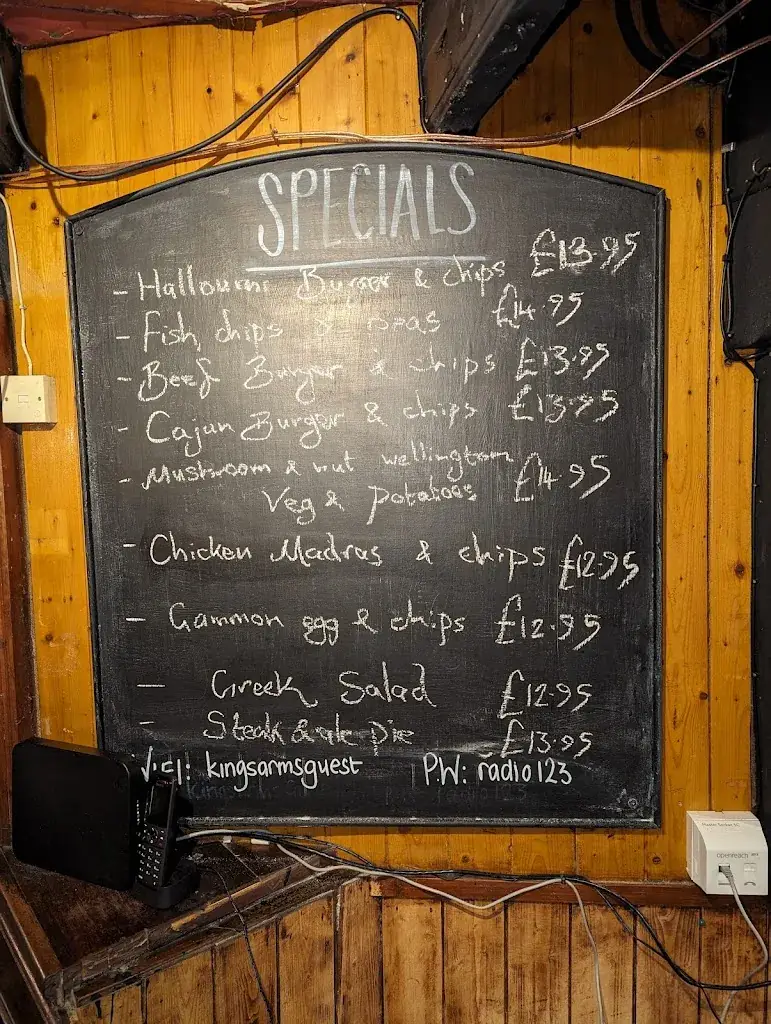 SPECIALS
- Halloumi Burger & chips £13.95
- Fish, chips & peas £14.95
- Beef Burger & chips £13.95
- Cajun Burger & chips £13.95
- Mushroom & nut wellington £14.95
Veg & Potatoes
- Chicken Madras & chips £12.95
- Gammon egg & chips £12.95
- Greek Salad £12.95
- Steak & ale pie £13.95
kingsarmsguest P.W: radio123
openreach